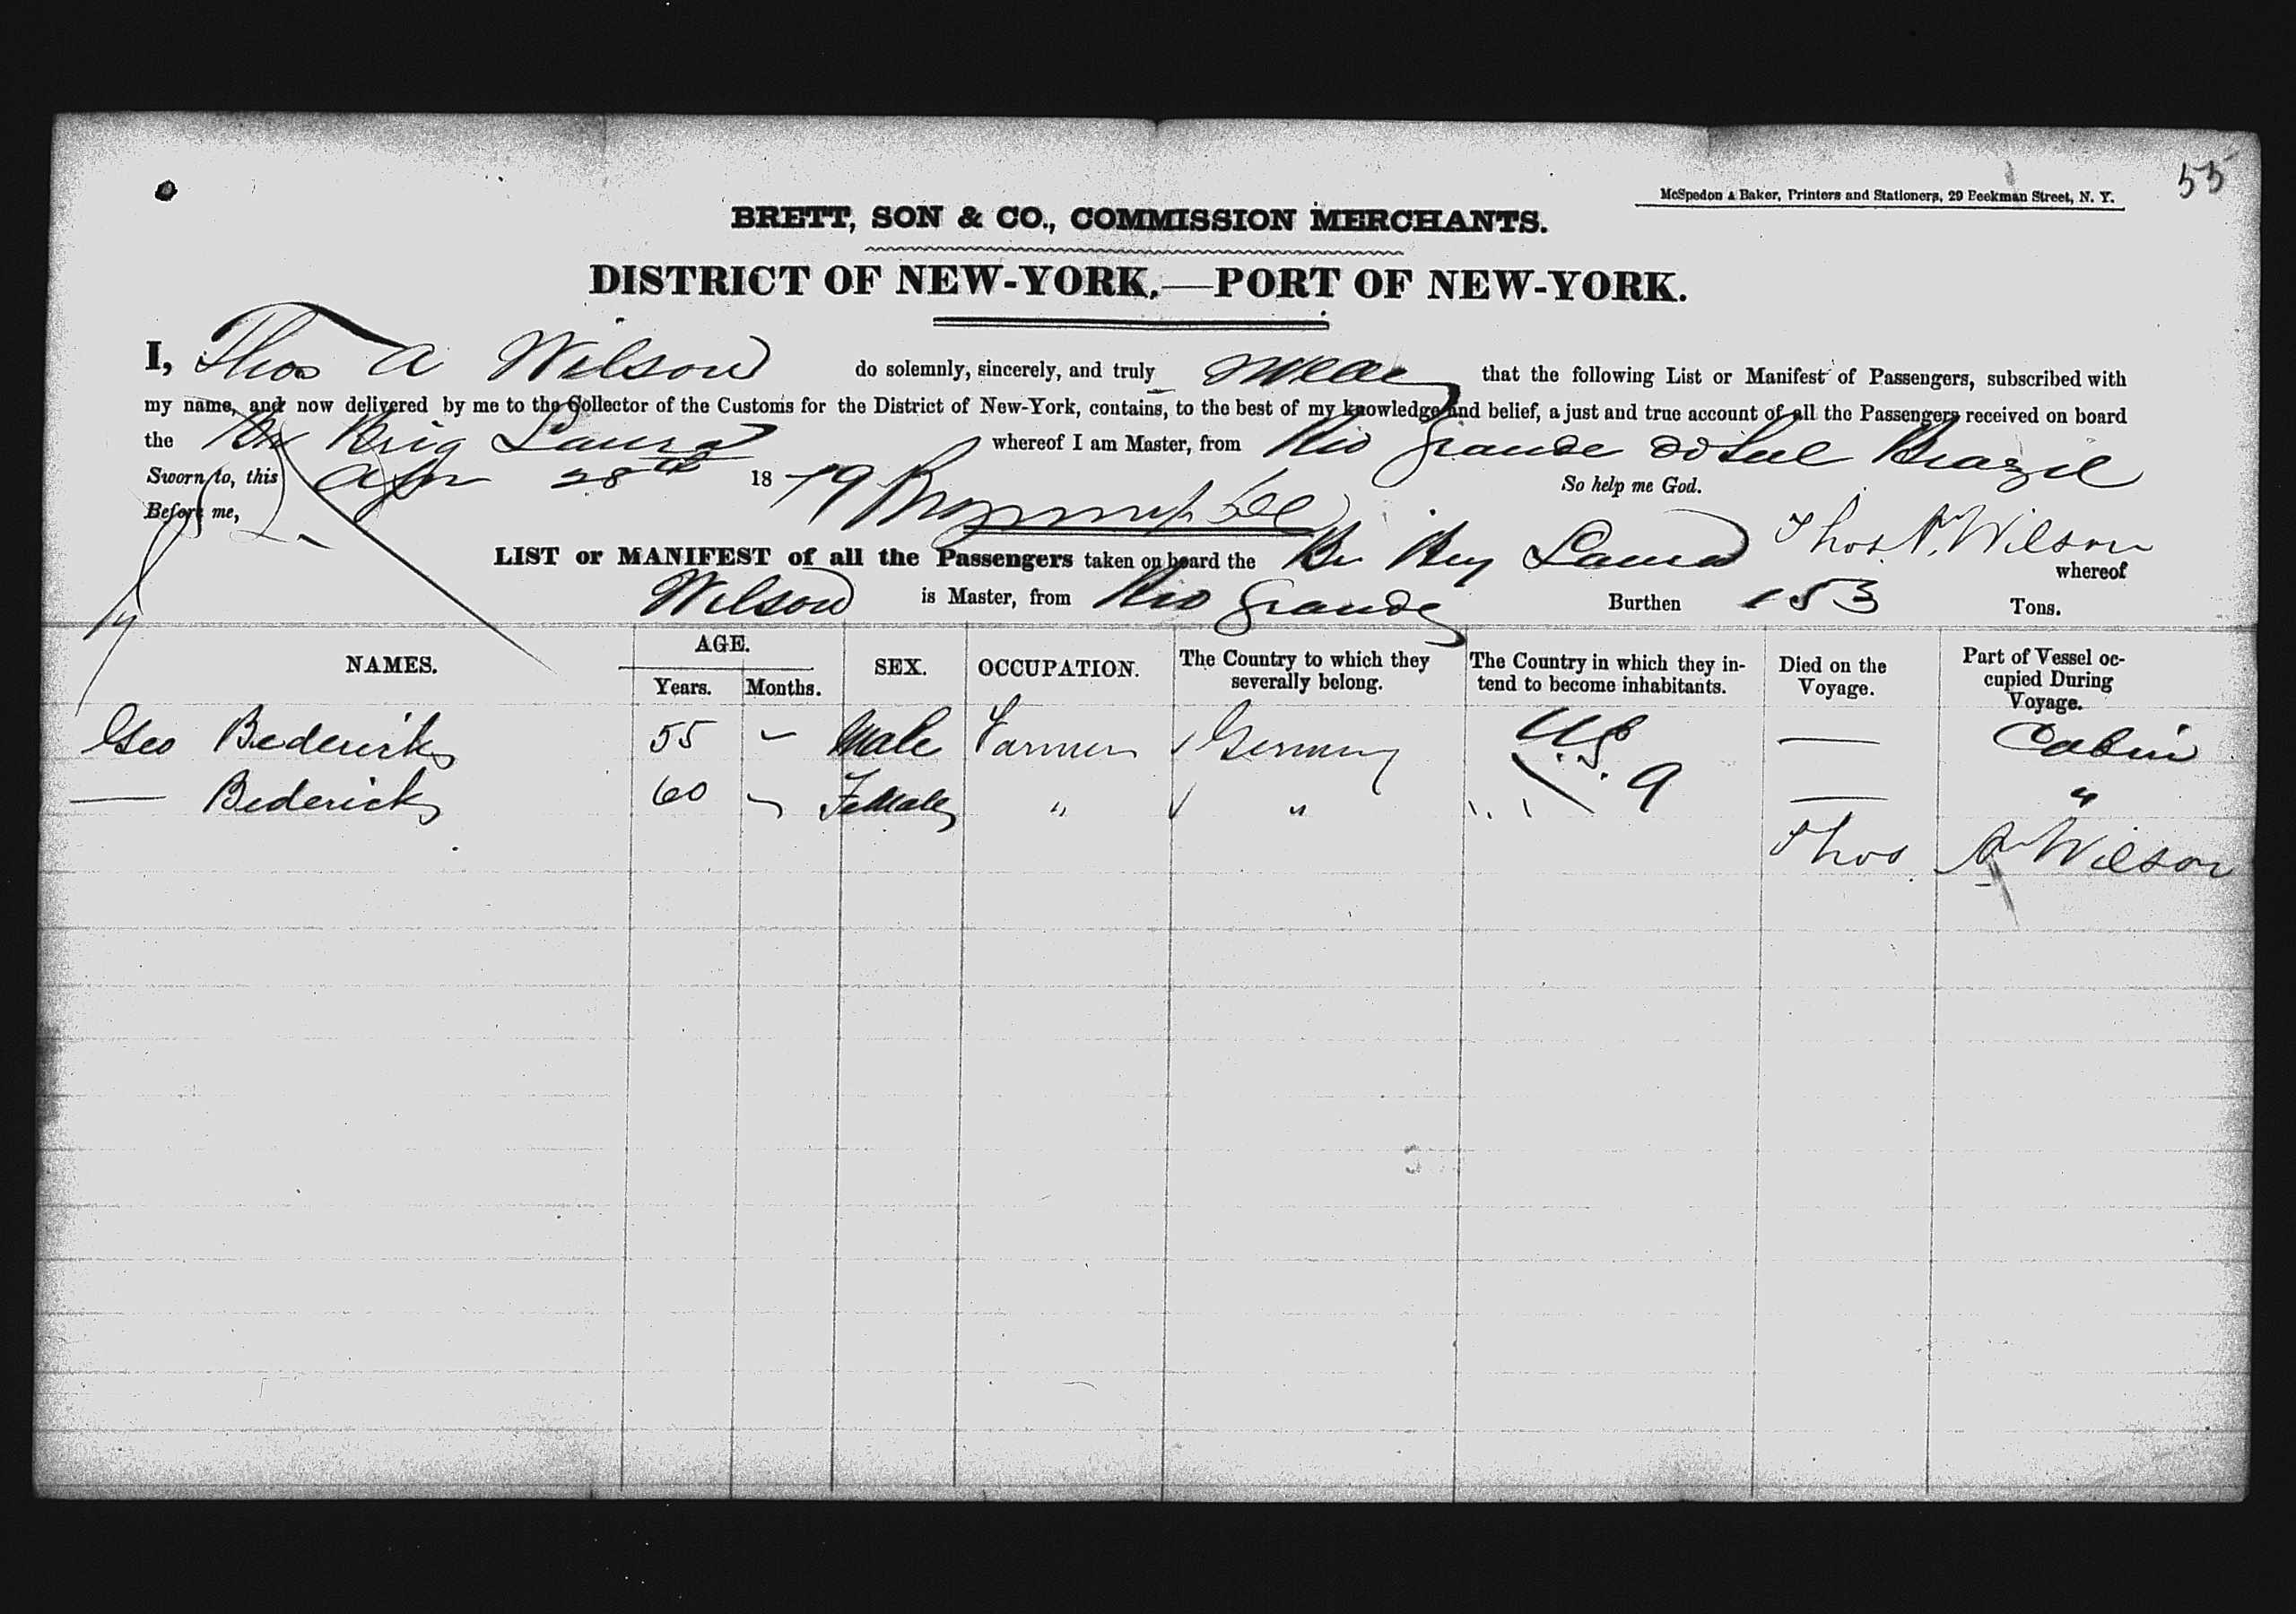 55
McSpedon & Baker, Printers and Stationers, 29 Beekman Street, N. Y.
BRETT, SON & CO., COMMISSION MERCHANTS.
DISTRICT OF NEW-YORK.—PORT OF NEW-YORK.
I, Thos A Wilson do solemnly, sincerely, and truly swear that the following List or Manifest of Passengers, subscribed with
my name, and now delivered by me to the Collector of the Customs for the District of New-York, contains, to the best of my knowledge and belief, a just and true account of all the Passengers received on board
the Br Brig Laura whereof I am Master, from Rio Grande do Sul Brazil
Sworn to, this Apr 28th 1879 So help me God.
Before me,
Thos A. Wilson
LIST or MANIFEST of all the Passengers taken on board the Br Brig Laura whereof
Wilson is Master, from Rio Grande Burthen 153 Tons.
NAMES. AGE. Years. Months. SEX. OCCUPATION. The Country to which they severally belong. The Country in which they intend to become inhabitants. Died on the Voyage. Part of Vessel occupied During Voyage.
Geo Bederick 55 – Male Farmer √ Germany U.S. — Cabin
— Bederick 60 – Female " √ " " 9 — "
Thos A Wilson